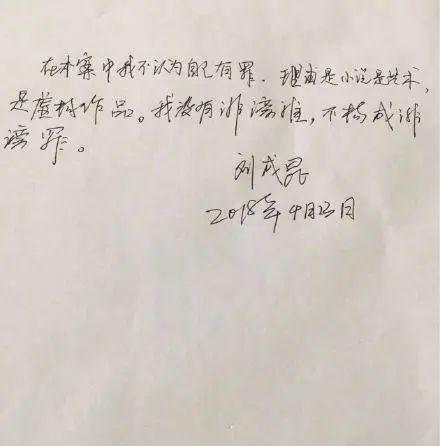 在本案中我不认为自己有罪．理由是小说是艺术，
是虚构作品。我没有诽谤谁，不构成诽
谤罪。
刘成昆
2018年4月23日